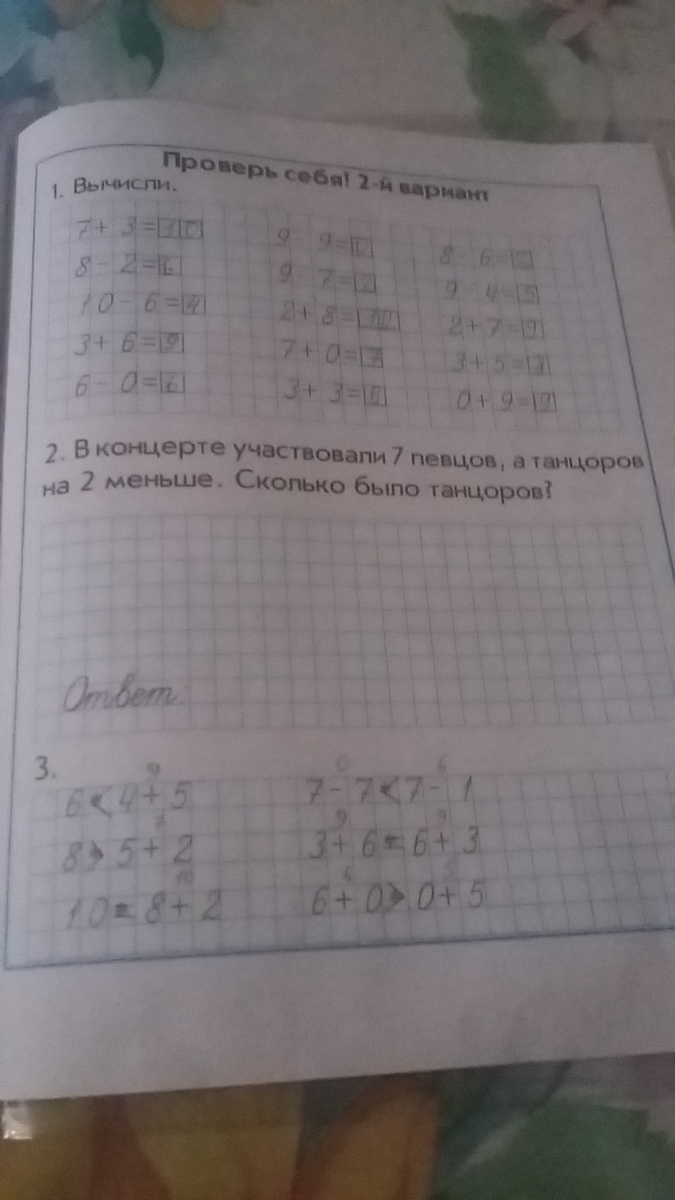 Проверь себя! 2-й вариант
1. Вычисли.
7 + 3 = 10 9 - 9 = 0 8 - 6 =
8 - 2 = 6 9 - 7 = 2 9 - 4 = 5
10 - 6 = 4 2 + 8 = 10 2 + 7 = 9
3 + 6 = 9 7 + 0 = 7 3 + 5 =
6 - 0 = 6 3 + 3 = 0 + 9 =
2. В концерте участвовали 7 певцов, а танцоров
на 2 меньше. Сколько было танцоров?
Ответ:
3.
9 0 6
6 < 4 + 5 7 - 7 < 7 - 1
7 9 9
8 > 5 + 2 3 + 6 = 6 + 3
10 6 5
10 = 8 + 2 6 + 0 > 0 + 5